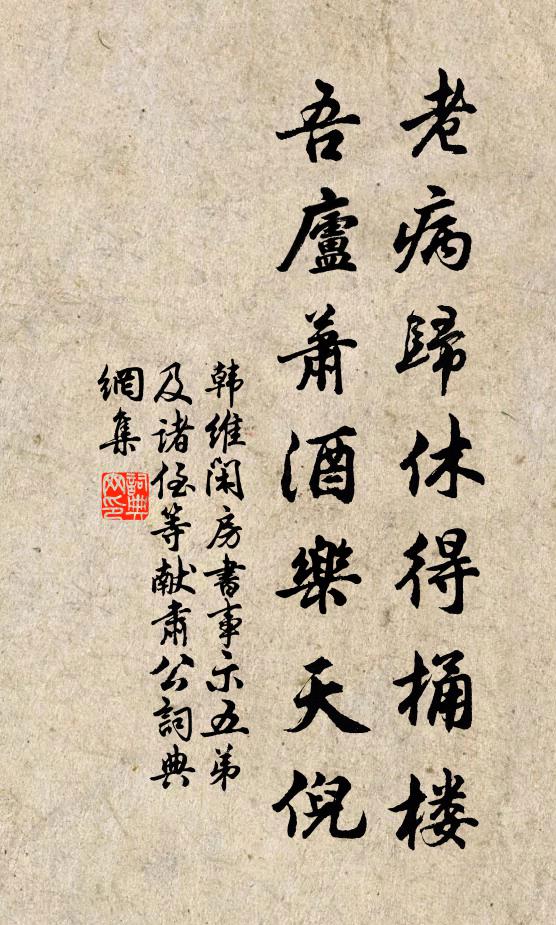 老病歸休得桶楼
吾廬蕭酒樂天倪
韩維閑房書事示五弟
及諸侄等献肅公詞典
網集
詞典
网印